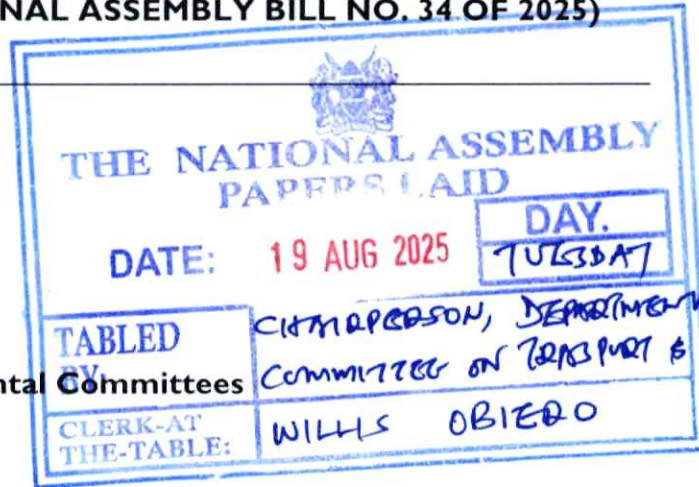 NAL ASSEMBLY BILL NO. 34 OF 2025)
THE NATIONAL ASSEMBLY
PAPERS LAID
DATE: 19 AUG 2025
DAY.
TUESDAY
TABLED
BY:
CHAIRPERSON, DEPARTMENT
COMMITTEE ON TRANSPORT &
ntal Committees
CLERK-AT
THE-TABLE:
WILLIS OBIERO